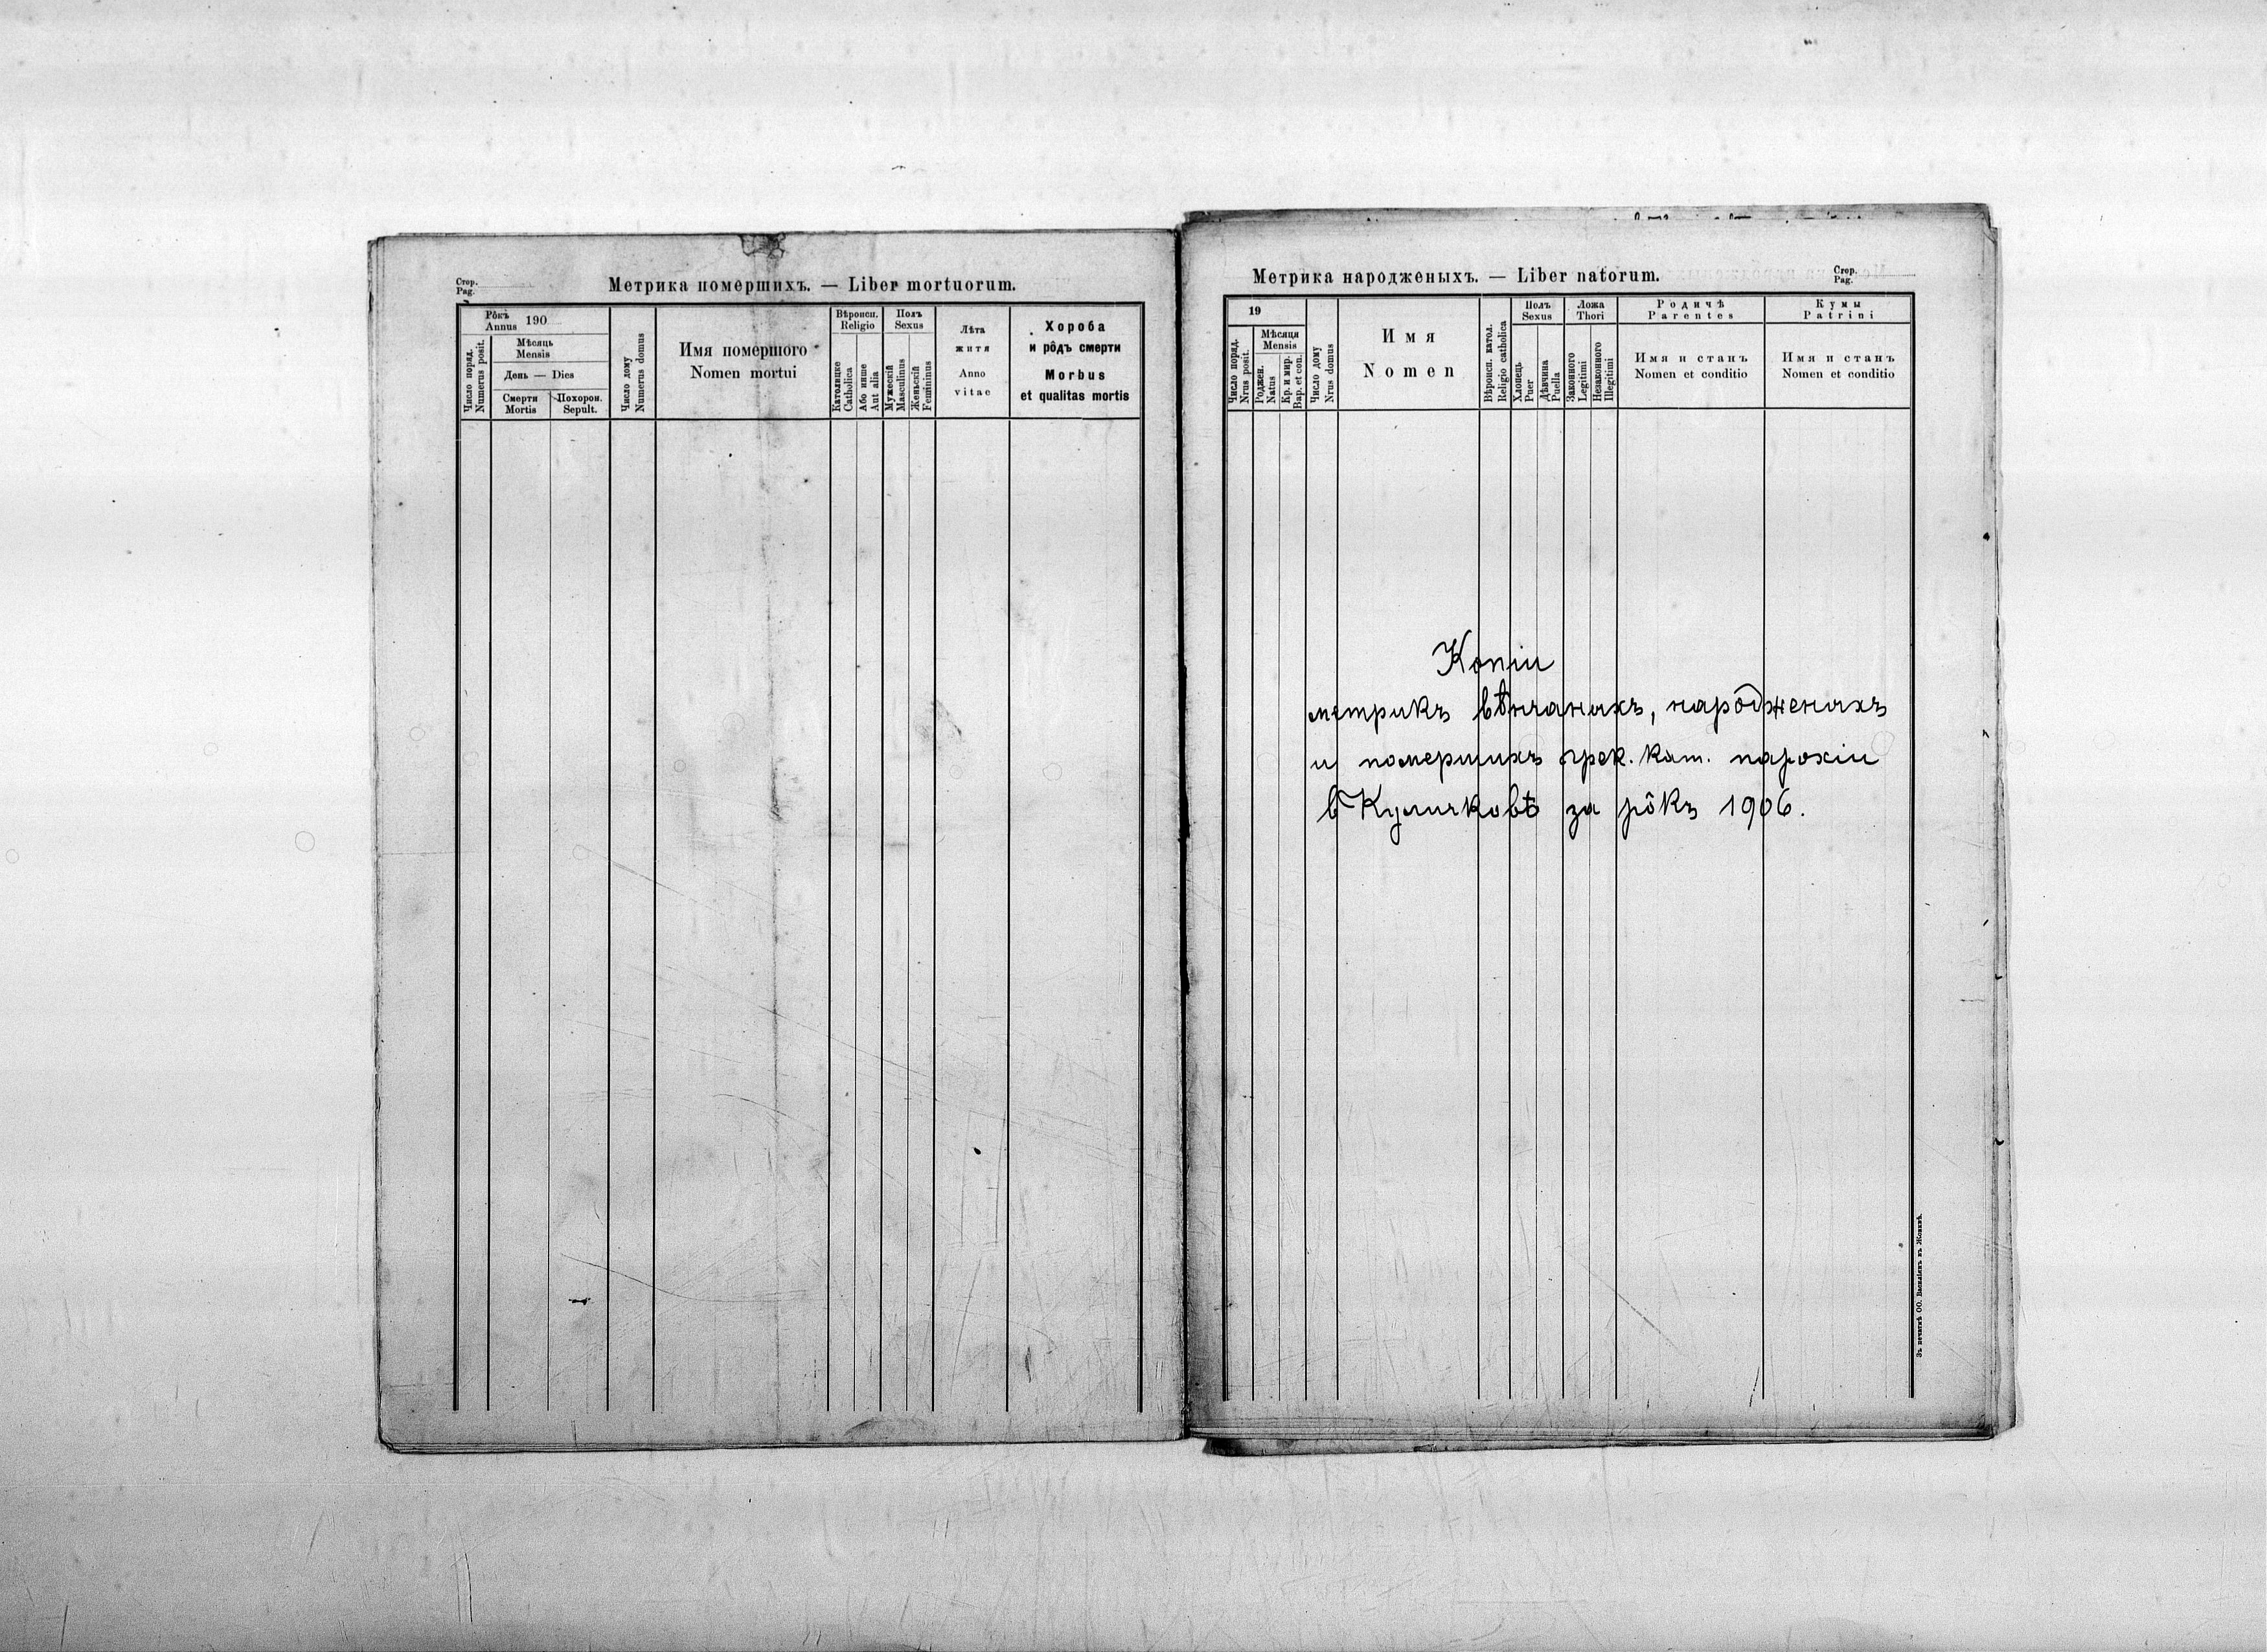 Стор.
Pag.
Метрика помершихъ. — Liber mortuorum.
Рôкъ
Annus 190
Число поряд.
Numerus posit.
Мѣсяць
Mensis
День — Dies
Смерти
Mortis
Похорон.
Sepult.
Число дому
Numerus domus
Имя помершого
Nomen mortui
Вѣроисп.
Religio
Католицке
Catholica
Або инше
Aut alia
Полъ
Sexus
Мужескій
Masculinus
Женьскій
Femininus
Лѣта
житя
Anno
vitae
Хороба
и рôдъ смерти
Morbus
et qualitas mortis
Метрика народженыхъ. — Liber natorum.
Стор.
Pag.
19
Число поряд.
Nrus posit.
Мѣсяця
Mensis
Роджен.
Natus
Кр. и мир.
Bap. et con.
Число дому
Nrus domus
Имя
Nomen
Вѣроисп. катол.
Religio catholica
Полъ
Sexus
Хлопець
Puer
Дѣвчина
Puella
Ложа
Thori
Законного
Legitimi
Незаконного
Illegitimi
Родичѣ
Parentes
Имя и станъ
Nomen et conditio
Кумы
Patrini
Имя и станъ
Nomen et conditio
Копіи
метрикъ вѣнчаныхъ, нарôдженыхъ
и помершихъ грек. кат. парохіи
в Куличковѣ за рôкъ 1906.
Зъ печатнѣ ОО. Василіянъ въ Жовквѣ.